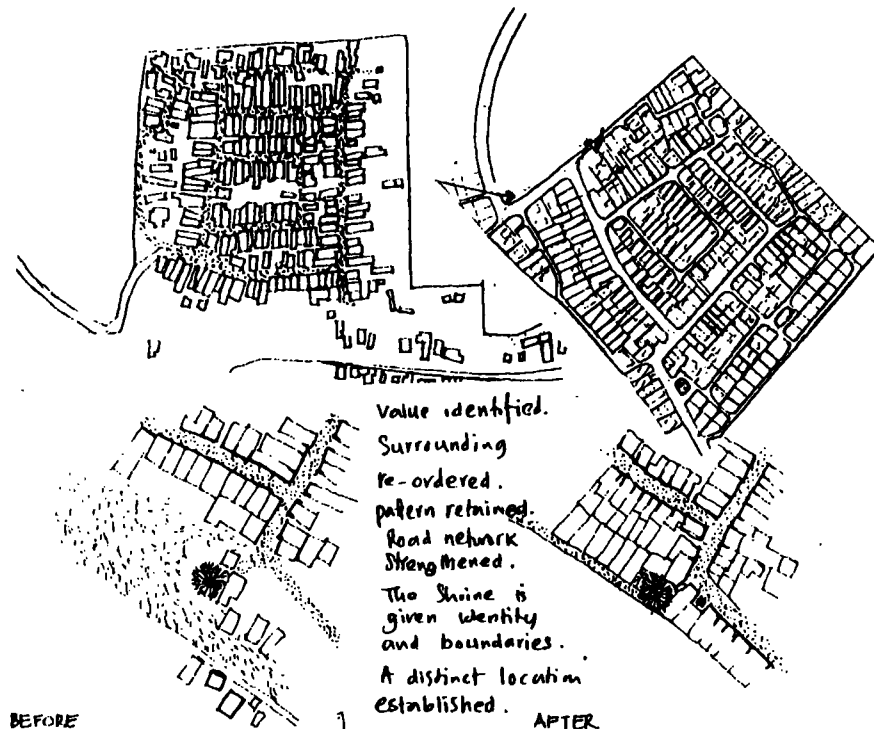 Value identified.
Surrounding
re-ordered.
pattern retained.
Road network
Strengthened.
The Shrine is
given identity
and boundaries.
A distinct location
established.
BEFORE
AFTER